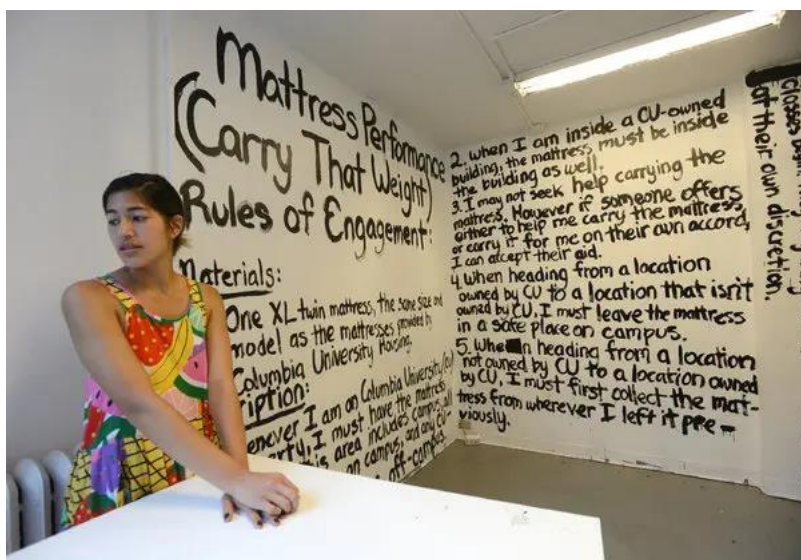 Mattress Performance
(Carry That Weight)
Rules of Engagement:
Materials:
One XL twin mattress, the same size and
model as the mattresses provided by
Columbia University Housing.
ription:
enever I am on Columbia University (CU)
erty, I must have the mattress
is area includes campus, all
on campus, and any CU-
off-campus.
2. When I am inside a CU-owned
building, the mattress must be inside
the building as well.
3. I may not seek help carrying the
mattress. However if someone offers
either to help me carry the mattress,
or carry it for me on their own accord,
I can accept their aid.
4. When heading from a location
owned by CU to a location that isn't
owned by CU, I must leave the mattress
in a safe place on campus.
5. When heading from a location
not owned by CU to a location owned
by CU, I must first collect the mat-
tress from wherever I left it pre-
viously.
classes
at their own discretion.